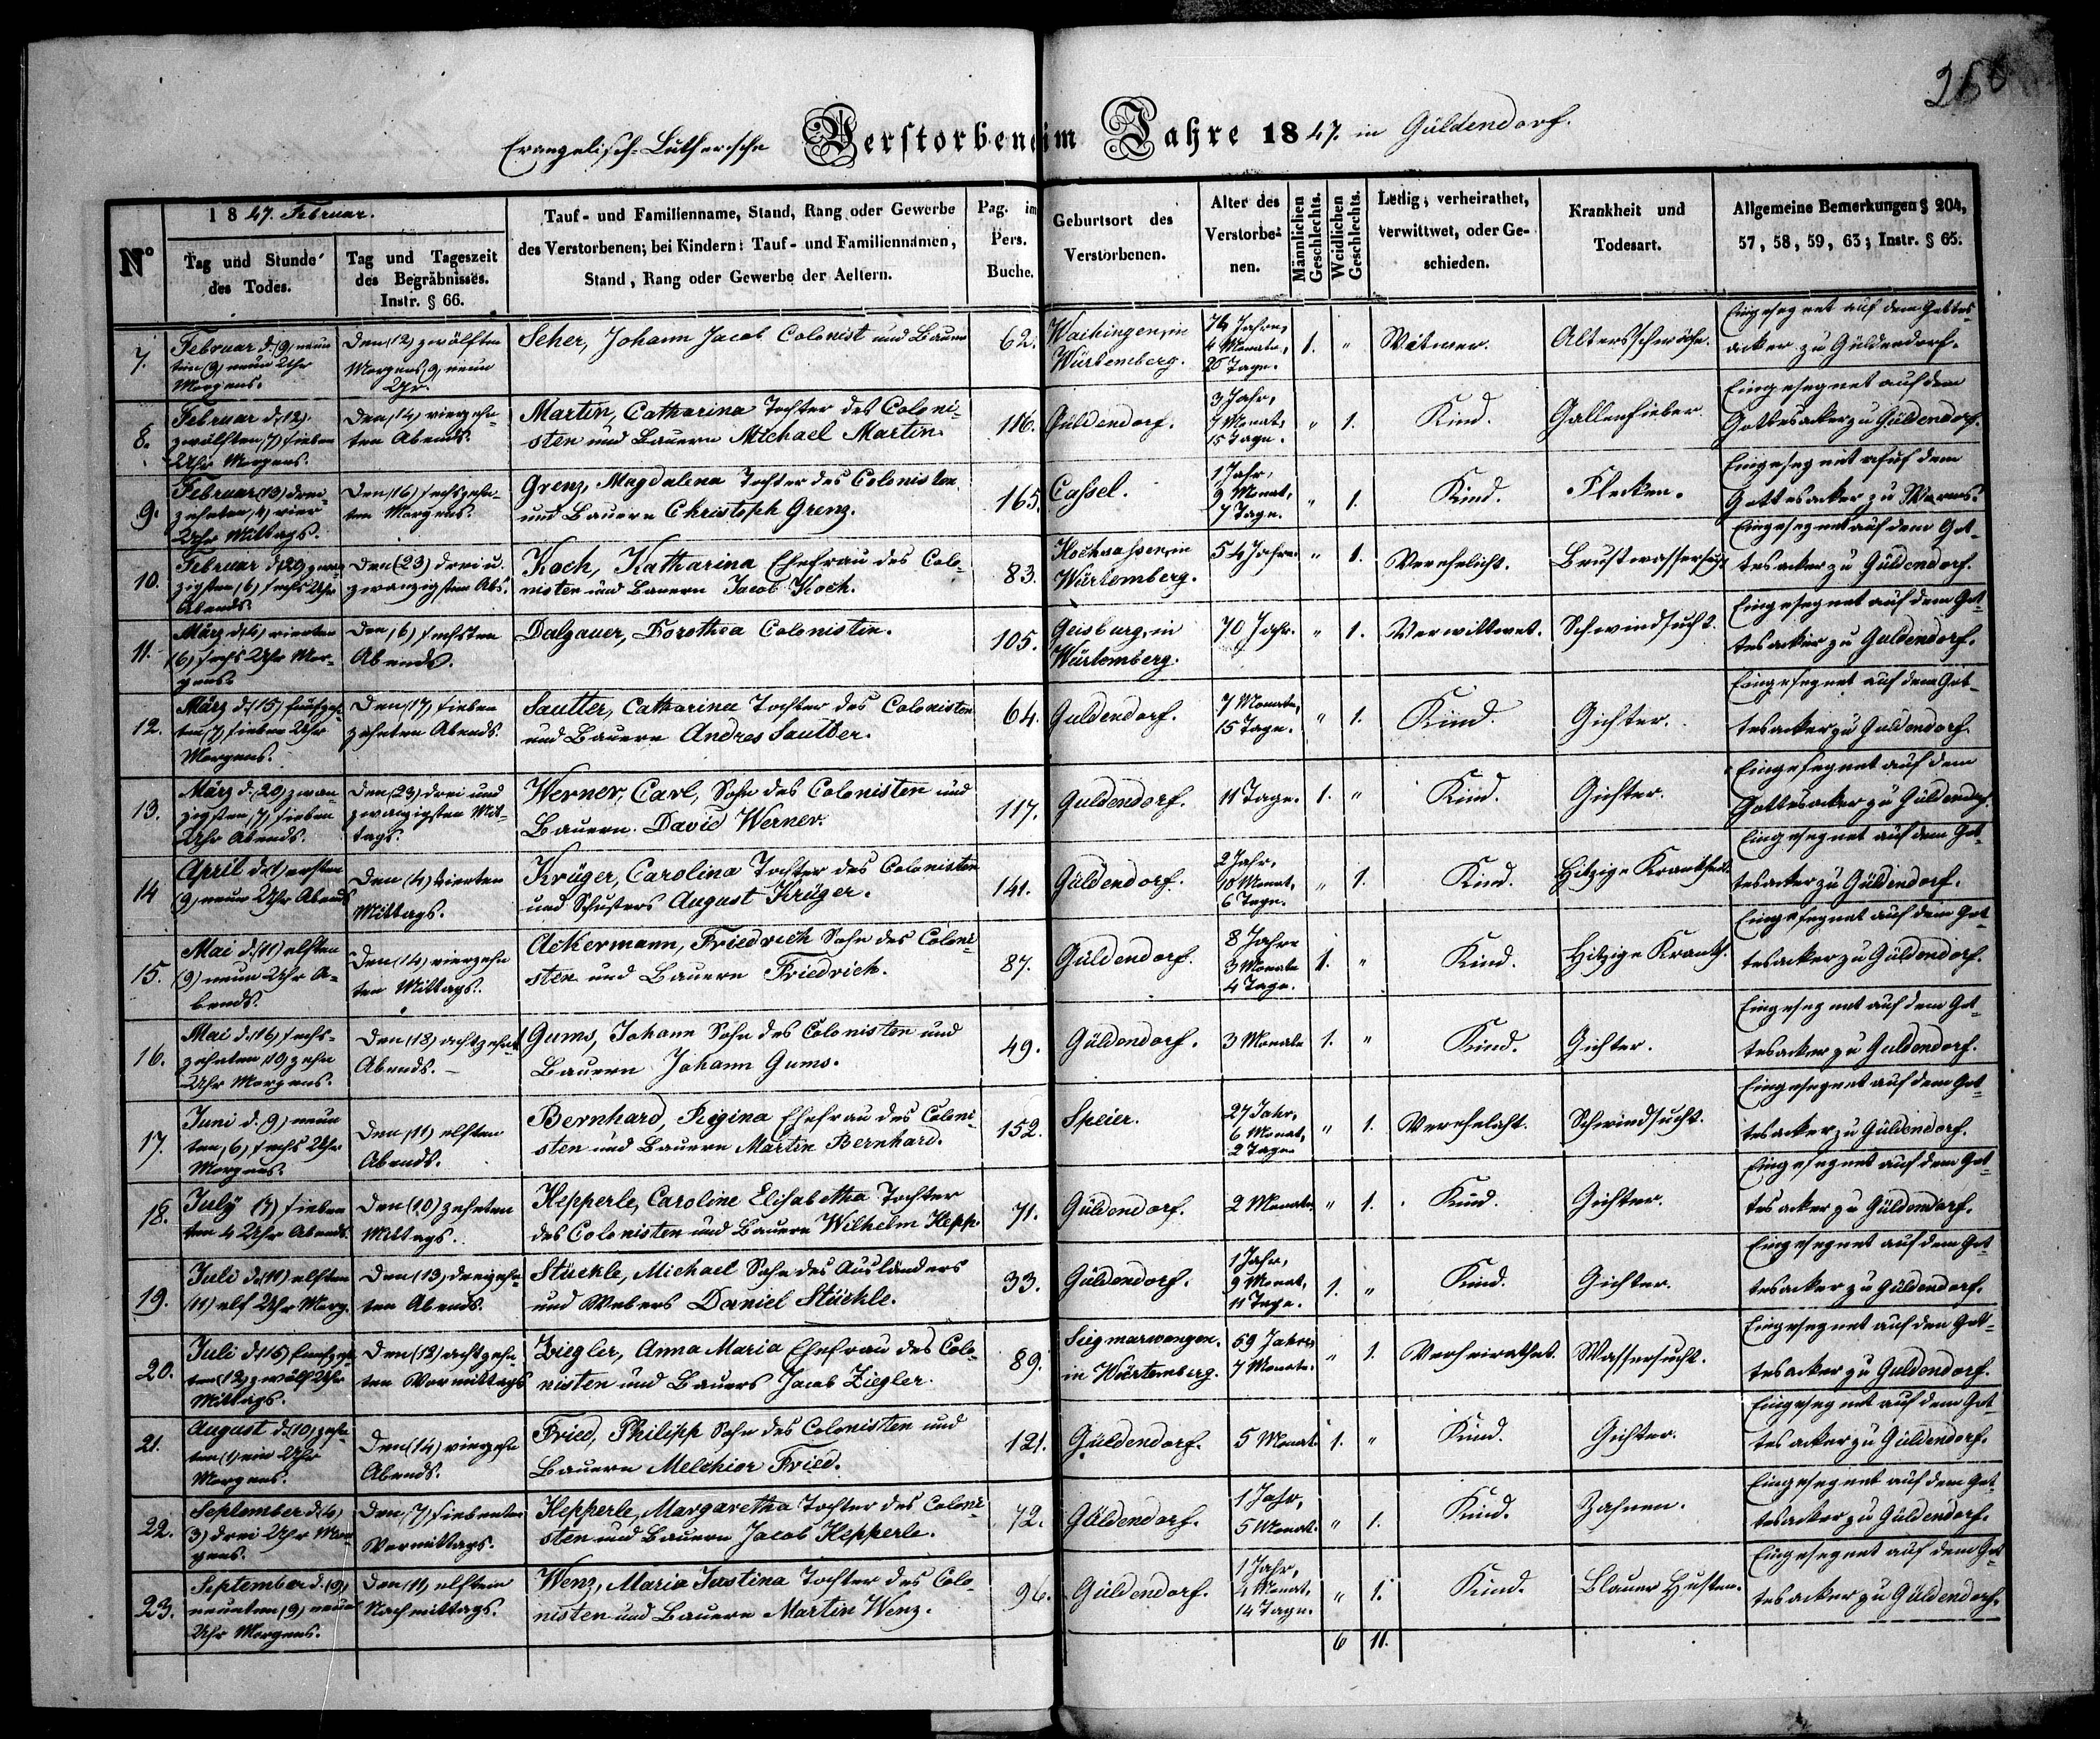 260
Evangelisch-Lutherische Verstorbene im Jahre 1847. in Güldendorf.
N°
1847. Februar.
Tag und Stunde des Todes.
Tag und Tageszeit des Begräbnisses. Instr. § 66.
Tauf- und Familienname, Stand, Rang oder Gewerbe
des Verstorbenen; bei Kindern: Tauf- und Familiennamen,
Stand, Rang oder Gewerbe der Aeltern.
Pag. im Pers. Buche.
Geburtsort des Verstorbenen.
Alter des Verstorbenen.
Männlichen Geschlechts.
Weiblichen Geschlechts.
Ledig, verheirathet, verwittwet, oder Geschieden.
Krankheit und Todesart.
Allgemeine Bemerkungen § 204, 57, 58, 59, 63; Instr. § 65.
7. Februar d. (9) neunten (9) neun Uhr Morgens. Den (12) zwölften Morgens 9, neun Uhr. Seher, Johann Jacob Colonist und Bauer 62. Waihingen, in Würtemberg. 74 Jahre, 4 Monate, 26 Tage. 1. " Witwer. Altersschwäche. Eingesegnet auf dem Gottesacker zu Güldendorf.
8. Februar d. (12) zwölften, (7) sieben Uhr Morgens. Den (14) vierzehnten Abends. Martin, Catharina Tochter des Colonisten und Bauern Michael Martin. 116. Güldendorf. 3 Jahr, 7 Monat, 15 Tage. " 1. Kind. Gallenfieber. Eingesegnet auf dem Gottesacker zu Güldendorf.
9. Februar (13) dreizehnten, 4) vier Uhr Mittags. Den (16) sechszehnten Morgens. Grenz, Magdalena Tochter des Colonisten und Bauern Christoph Grenz. 165. Cassel. 1 Jahr, 9 Monat, 7 Tage. " 1. Kind. Flecken. Eingesegnet auf dem Gottesacker zu Worms.
10. Februar d. (20) zwanzigsten (6) sechs Uhr Abends. Den (23) drei u. zwanzigsten Abs. Koch, Katharina Ehefrau des Colonisten und Bauern Jacob Koch. 83. in Würtemberg. 54 Jahre " 1. Verehelicht. Brustwassersucht Eingesegnet auf dem Gottesacker zu Güldendorf.
11. März d. (4) vierten (6) sechs Uhr Morgens. Den (6) sechsten Abends. Dalgauer, Dorothea Colonistin. 105. Geisburg, in Würtemberg. 70 Jahr. " 1. Verwittwet. Schwindsucht. Eingesegnet auf dem Gottesacker zu Guldendorf.
12. März d. (15) fünfzehnten (7) sieben Uhr Morgens. Den (17) siebenzehnten Abends. Sautter, Catharina Tochter des Colonisten und Bauern Andres Sautter. 64. Guldendorf. 7 Monate, 15 Tage. " 1. Kind. Gichter. Eingesegnet auf dem Gottesacker zu Guldendorf.
13. März d. (20) zwanzigsten (7) sieben Uhr Abends. Den (23) drei und zwanzigsten Mittags. Werner, Carl, Sohn des Colonisten und Bauern David Werner. 117. Guldendorf. 11 Tage. 1. " Kind. Gichter. Eingesegnet auf dem Gottesacker zu Güldendorf.
14 April d. (1) ersten (9) neun Uhr Abends Den (4) vierten Mittags. Krüger, Carolina Tochter des Colonisten und Schusters August Krüger. 141. Güldendorf. 2 Jahr, 10 Monat, 6 Tage. " 1. Kind. Hitzige Krankheit. Eingesegnet auf dem Gottesacker zu Güldendorf.
15. Mai d. (11) elften (9) neun Uhr Abends. Den (14) vierzehnten Mittags. Ackermann, Friedrich Sohn des Colonisten und Bauern Friedrich. 87. Güldendorf. 8 Jahre 3 Monate 4 Tage. 1. " Kind. Hitzige Krankh. Eingesegnet auf dem Gottesacker zu Güldendorf.
16. Mai d. (16) sechszehnten (10) zehn Uhr Morgens. Den (18) achtzehnt Abends. Gums, Johann Sohn des Colonisten und Bauern Johann Gums. 49. Güldendorf. 3 Monate 1. " Kind. Gichter. Eingesegnet auf dem Gottesacker zu Guldendorf.
17. Juni d. (9) neunten, 6) sechs Uhr Morgens. Den (11) elften Abends. Bernhard, Regina Ehefrau des Colonisten und Bauern Martin Bernhard. 152. Speier. 27 Jahr, 6 Monat, 2 Tage. " 1. Verehelicht. Schwindsucht. Eingesegnet auf dem Gottesacker zu Güldendorf.
18. July (7) siebenten 4 Uhr Abends. Den (10) zehnten Mittags. Hepperle, Caroline Elisabetha Tochter des Colonisten und Bauern Wilhelm Hepp. 71. Güldendorf. 2 Monate " 1. Kind. Gichter. Eingesegnet auf dem Gottesacker zu Güldendorf.
19. Juli d. (11) elften (11) elf Uhr Morg. Den (13) dreizehnten Abends. Stückle, Michael Sohn des Ausländers und Webers Daniel Stückle. 33. Güldendorf. 1 Jahr, 9 Monat, 11 Tage. 1. " Kind. Gichter. Eingesegnet auf dem Gottesacker zu Güldendorf.
20. Juli d. (16) (12) zwölf Uhr Mittags. Den (18) achtzehnten Vormittags Ziegler, Anna Maria Ehefrau des Colonisten und Bauers Jacob Ziegler. 89. Siegmarwangen. in Würtemberg. 69 Jahre 7 Monate. " 1. Verheirathet. Wassersucht. Eingesegnet auf den Gottesacker zu Guldendorf.
21. August d. (10) zehnten (1) ein Uhr Morgens. Den (14) vierzehn Abends. Fried, Philipp Sohn des Colonisten und Bauern Melchior Fried. 121. Güldendorf. 5 Monat. 1. " Kind. Gichter. Eingesegnet auf dem Gottesacker zu Güldendorf.
22. September d. (4) 3) drei Uhr Morgens. Den (7) siebenten Vormittags. Hepperle, Margaretha Tochter des Colonisten und Bauern Jacob Hepperle. 72. Güldendorf. 1 Jahr, 5 Monat. " 1. Kind. Zahnen. Eingesegnet auf dem Gottesacker zu Güldendorf.
23. September d. (9) neunten (9) neun Uhr Morgens. Den (11) elften Nachmittags. Wenz, Maria Justina Tochter des Colonisten und Bauern Martin Wenz. 96. Güldendorf. 1 Jahr, 4 Monat. 14 Tage. " 1. Kind. Blauer Husten. Eingesegnet auf dem Gottesacker zu Güldendorf.
6 11.